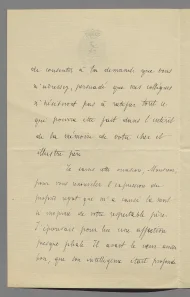 de consentir à la demande que vous
m'adressez, persuadé que mes collègues
n'hésiteront pas à ratifier tout ce
qui pourra être fait dans l'intérêt
de la mémoire de votre cher et
illustre père
Je saisis cette occasion, Monsieur,
pour vous renouveler l'expression du
profond regret que m'a causé la mort
de votre respectable père.
J'éprouvais pour lui une affection
presque filiale. Il avait
bon, que son intelligence était profonde